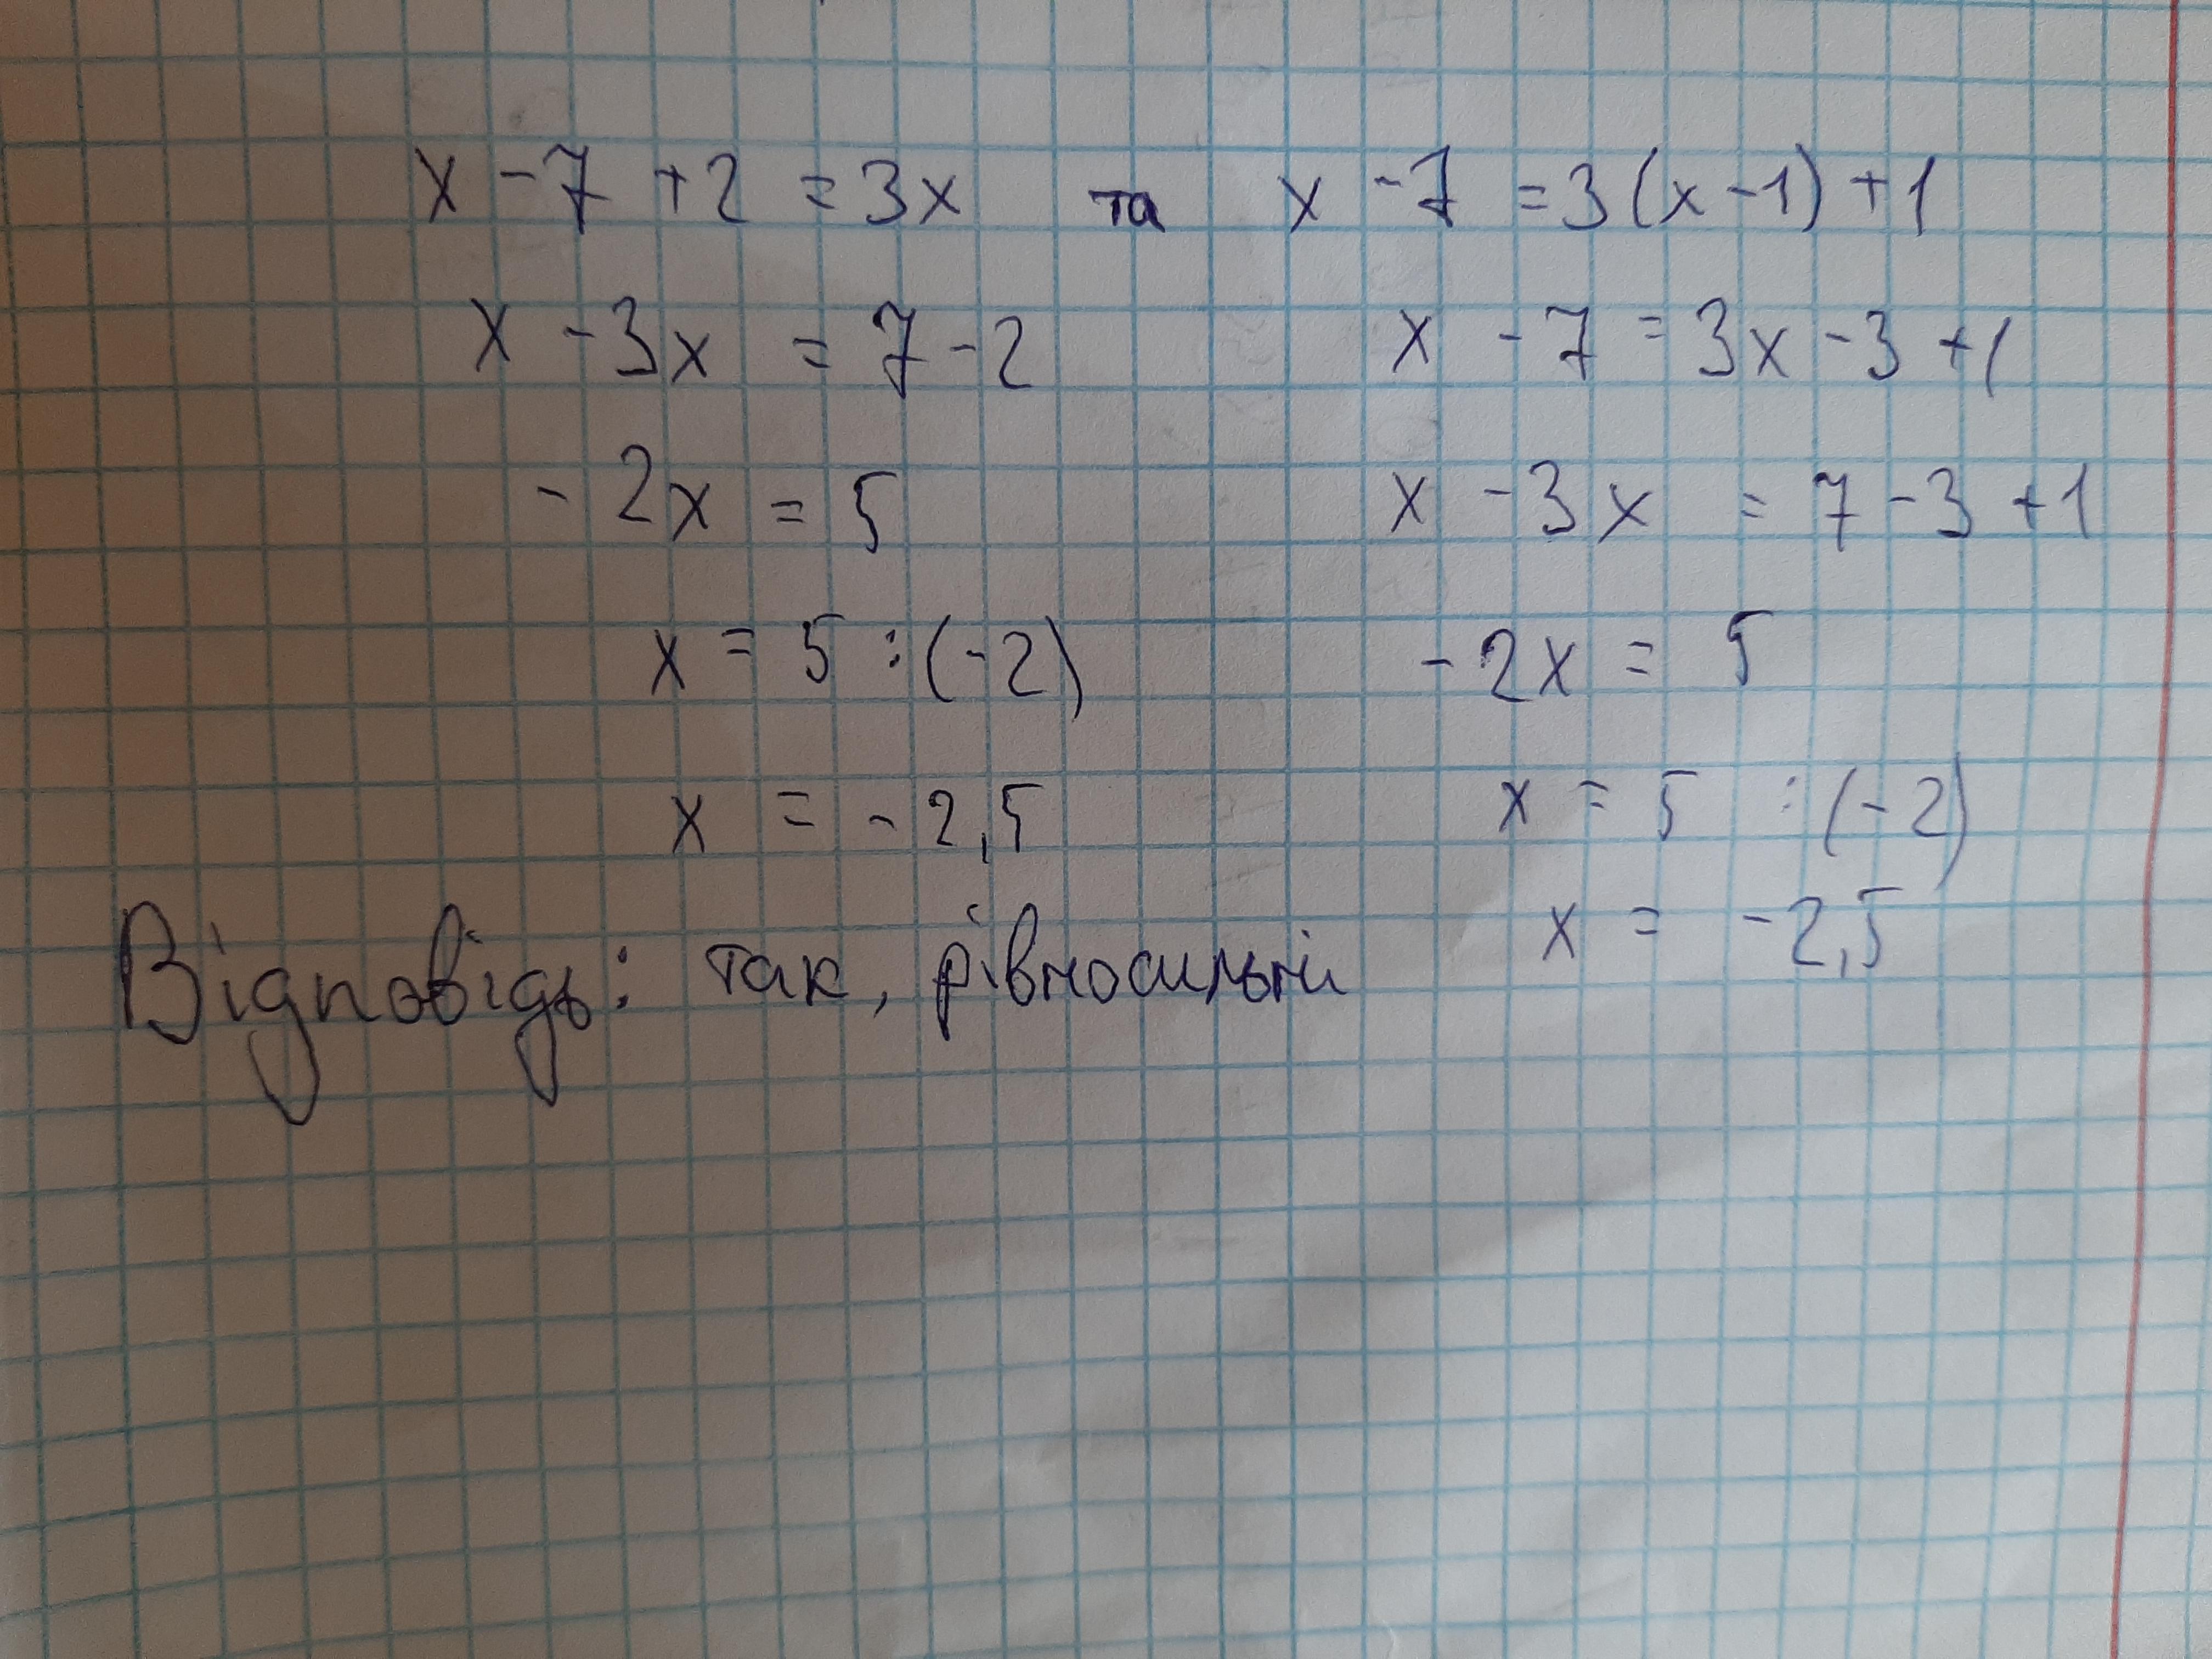 x - 7 + 2 = 3x та x - 7 = 3(x - 1) + 1
x - 3x = 7 - 2 x - 7 = 3x - 3 + 1
- 2x = 5 x - 3x = 7 - 3 + 1
x = 5 : (-2) - 2x = 5
x = - 2,5 x = 5 : (-2)
Відповідь: так, рівносильні x = -2,5